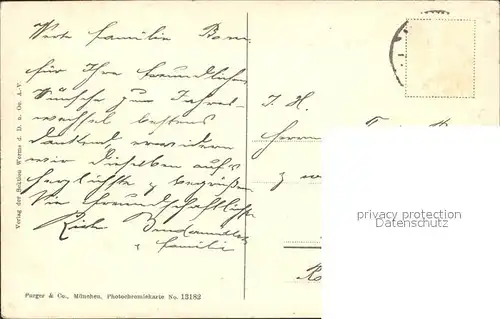 Werte Familie Born.
für Ihre freundlichen
Wünsche zum Jahres-
wechsel bestens
dankend, erwidern
wir dieselben aufs
herzlichste & begrüßen
Sie freundschaftlichst
Familie
Verlag der Sektion Worms d. D. u. Oe. A.-V.
Purger & Co., München, Photochromiekarte No. 13182
Herrn
privacy protection
Datenschutz